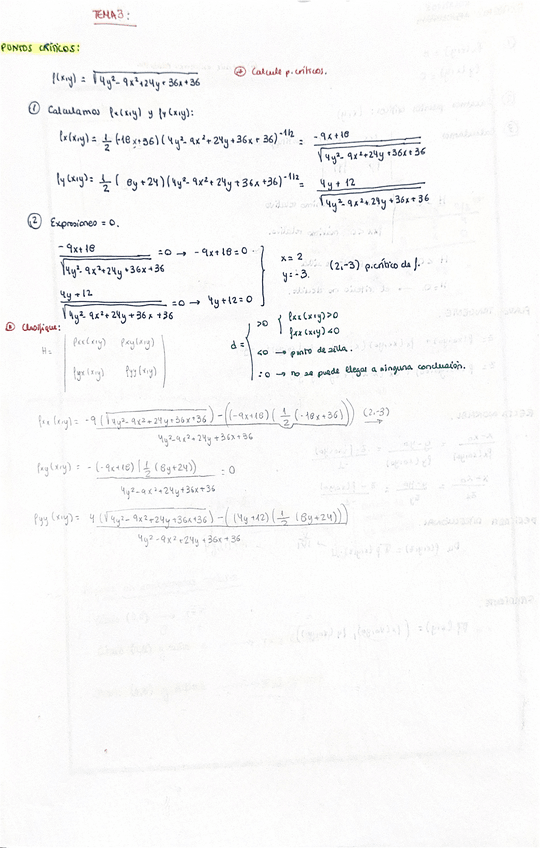 TEMA 3:
PUNTOS CRÍTICOS:
f(x,y) = √(4y²-9x²+24y+36x+36) Calcule p. críticos.
① Calculamos fx(x,y) y fy(x,y):
fx(x,y) = 1/2 (-18x+36) (4y²-9x²+24y+36x+36)^-1/2 = (-9x+18)/√(4y²-9x²+24y+36x+36)
fy(x,y) = 1/2 (8y+24) (4y²-9x²+24y+36x+36)^-1/2 = (4y+12)/√(4y²-9x²+24y+36x+36)
② Expresiones = 0.
(-9x+18)/√(4y²-9x²+24y+36x+36) = 0 → -9x+18=0
(4y+12)/√(4y²-9x²+24y+36x+36) = 0 → 4y+12=0
x=2
y=-3.
(2,-3) p.crítico de f.
Clasifique:
H= | fxx(x,y) fxy(x,y) |
| fyx(x,y) fyy(x,y) |
d = { >0 { fxx(x,y)>0
fxx(x,y)<0
<0 → punto de silla.
=0 → no se puede llegar a ninguna conclusión.
fxx(x,y) = -9 (√(4y²-9x²+24y+36x+36) - ((-9x+18)(1/2 (-18x+36))) / 4y²-9x²+24y+36x+36 (2,-3) →
fxy(x,y) = -(-9x+18)(1/2 (8y+24)) / 4y²-9x²+24y+36x+36 = 0
fyy(x,y) = 4 (√(4y²-9x²+24y+36x+36) - ((4y+12)(1/2 (8y+24))) / 4y²-9x²+24y+36x+36